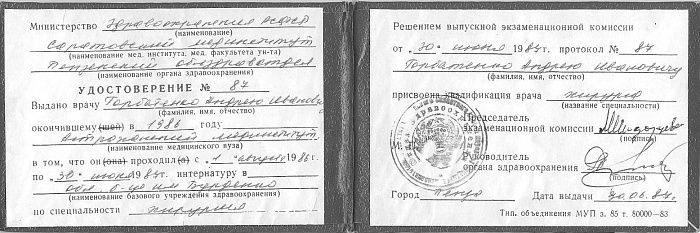 Министерство Здравоохранения РСФСР
(наименование)
Саратовский мединститут
(наименование мед. института, мед. факультета ун-та)
Пензенский облздравотдел
(наименование органа здравоохранения)
УДОСТОВЕРЕНИЕ № 87
Выдано врачу Горбатенко Андрею Иванови
(фамилия, имя, отчество)
окончившему (шей) в 1986 году
Астраханский мединститут
(наименование медицинского вуза)
в том, что он(она) проходил(а) с 1 августа 1986г
по 30 июня 1987г. интернатуру в
обл. б-це им Бурденко
(наименование базового учреждения здравоохранения)
по специальности хирургия
Решением выпускной экзаменационной комиссии
от „30" июня 1987г. протокол № 87
Горбатенко Андрею Ивановичу
(фамилия, имя, отчество)
присвоена квалификация врача хирурга
(название специальности)
Председатель
экзаменационной комиссии
(подпись)
М.
Руководитель
органа здравоохранения
(подпись)
Город Пенза Дата выдачи 30.06.87г.
Тип. объединения МУП з. 85 т. 80000—83